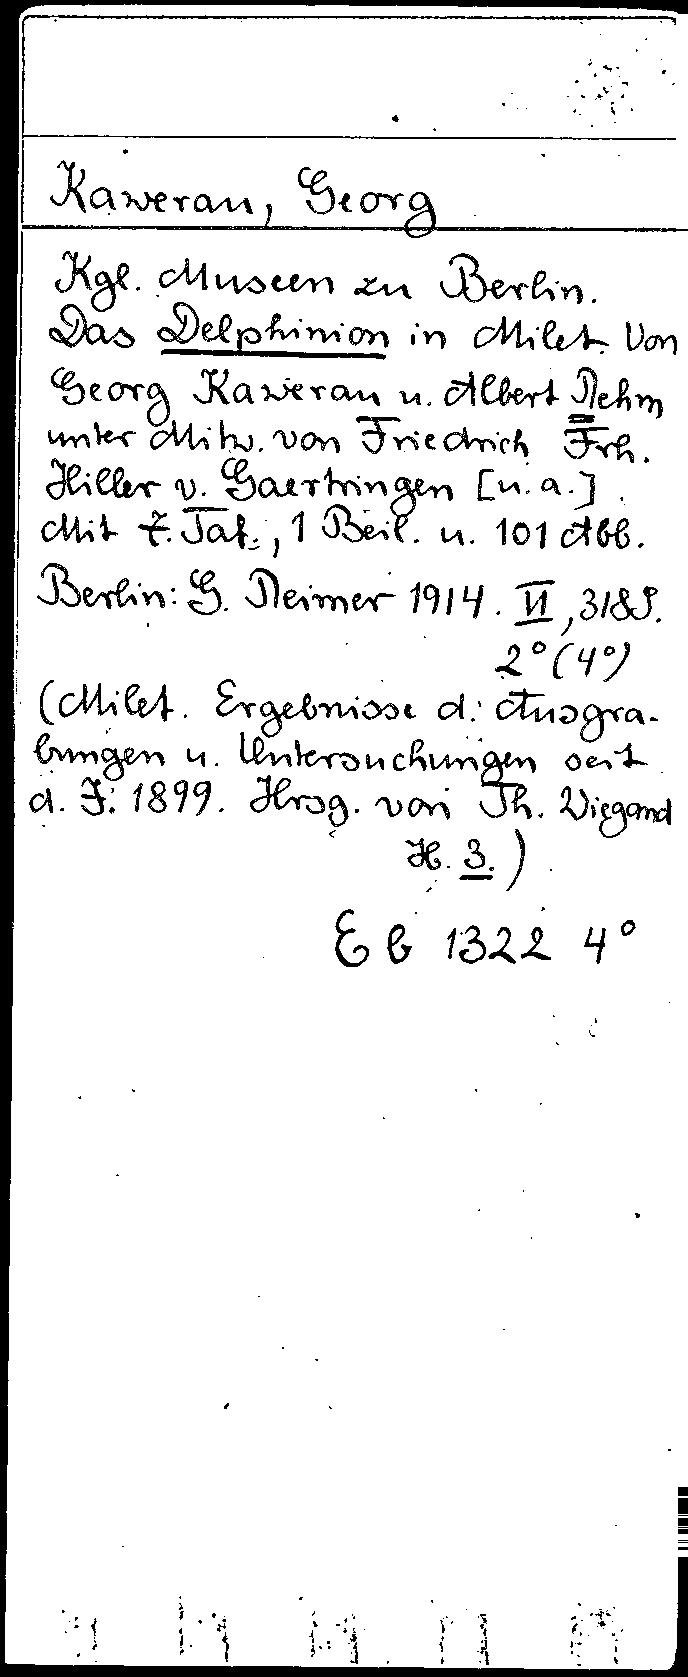 Kawerau, Georg
Kgl. Museen zu Berlin.
Das Delphinion in Milet. Von
Georg Kawerau u. Albert Rehm
unter Mitw. von Friedrich Frh.
Hiller v. Gaertringen [u.a.].
Mit 7. Taf., 1 Beil. u. 101 Abb.
Berlin: G. Reimer 1914. VI, 318 S.
2° (4°)
(Milet. Ergebnisse d. Ausgra-
bungen u. Untersuchungen seit
d. J. 1899. Hrsg. von Th. Wiegand
H. 3.)
Eb 1322 4°